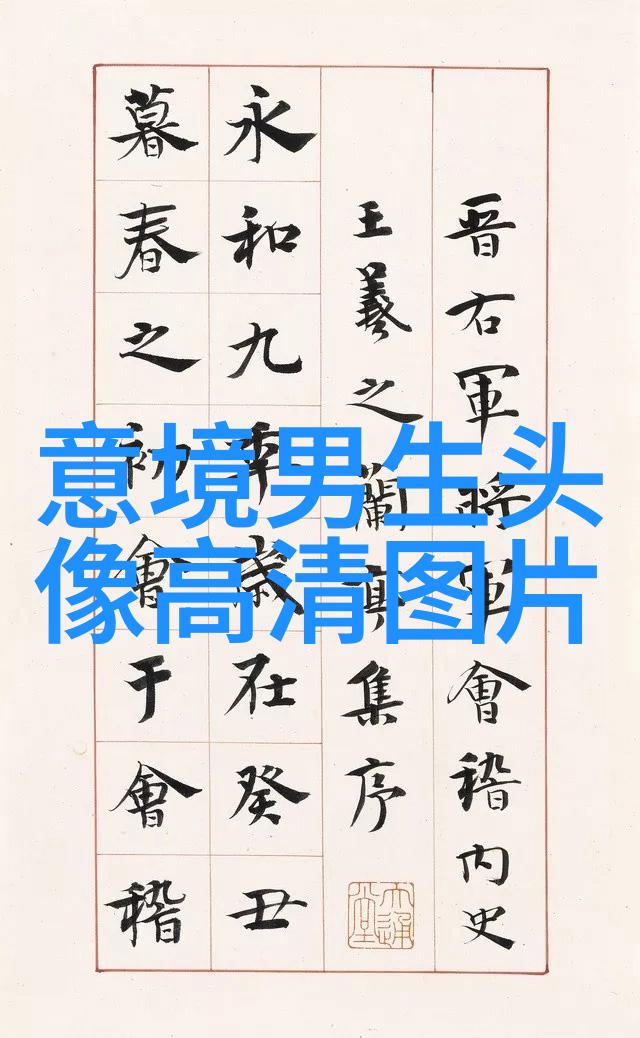 意境男生头
像高清图片
晋右軍將軍會稽内史
王羲之蘭亭集序
永和九年歲在癸丑
暮春之初會于會稽